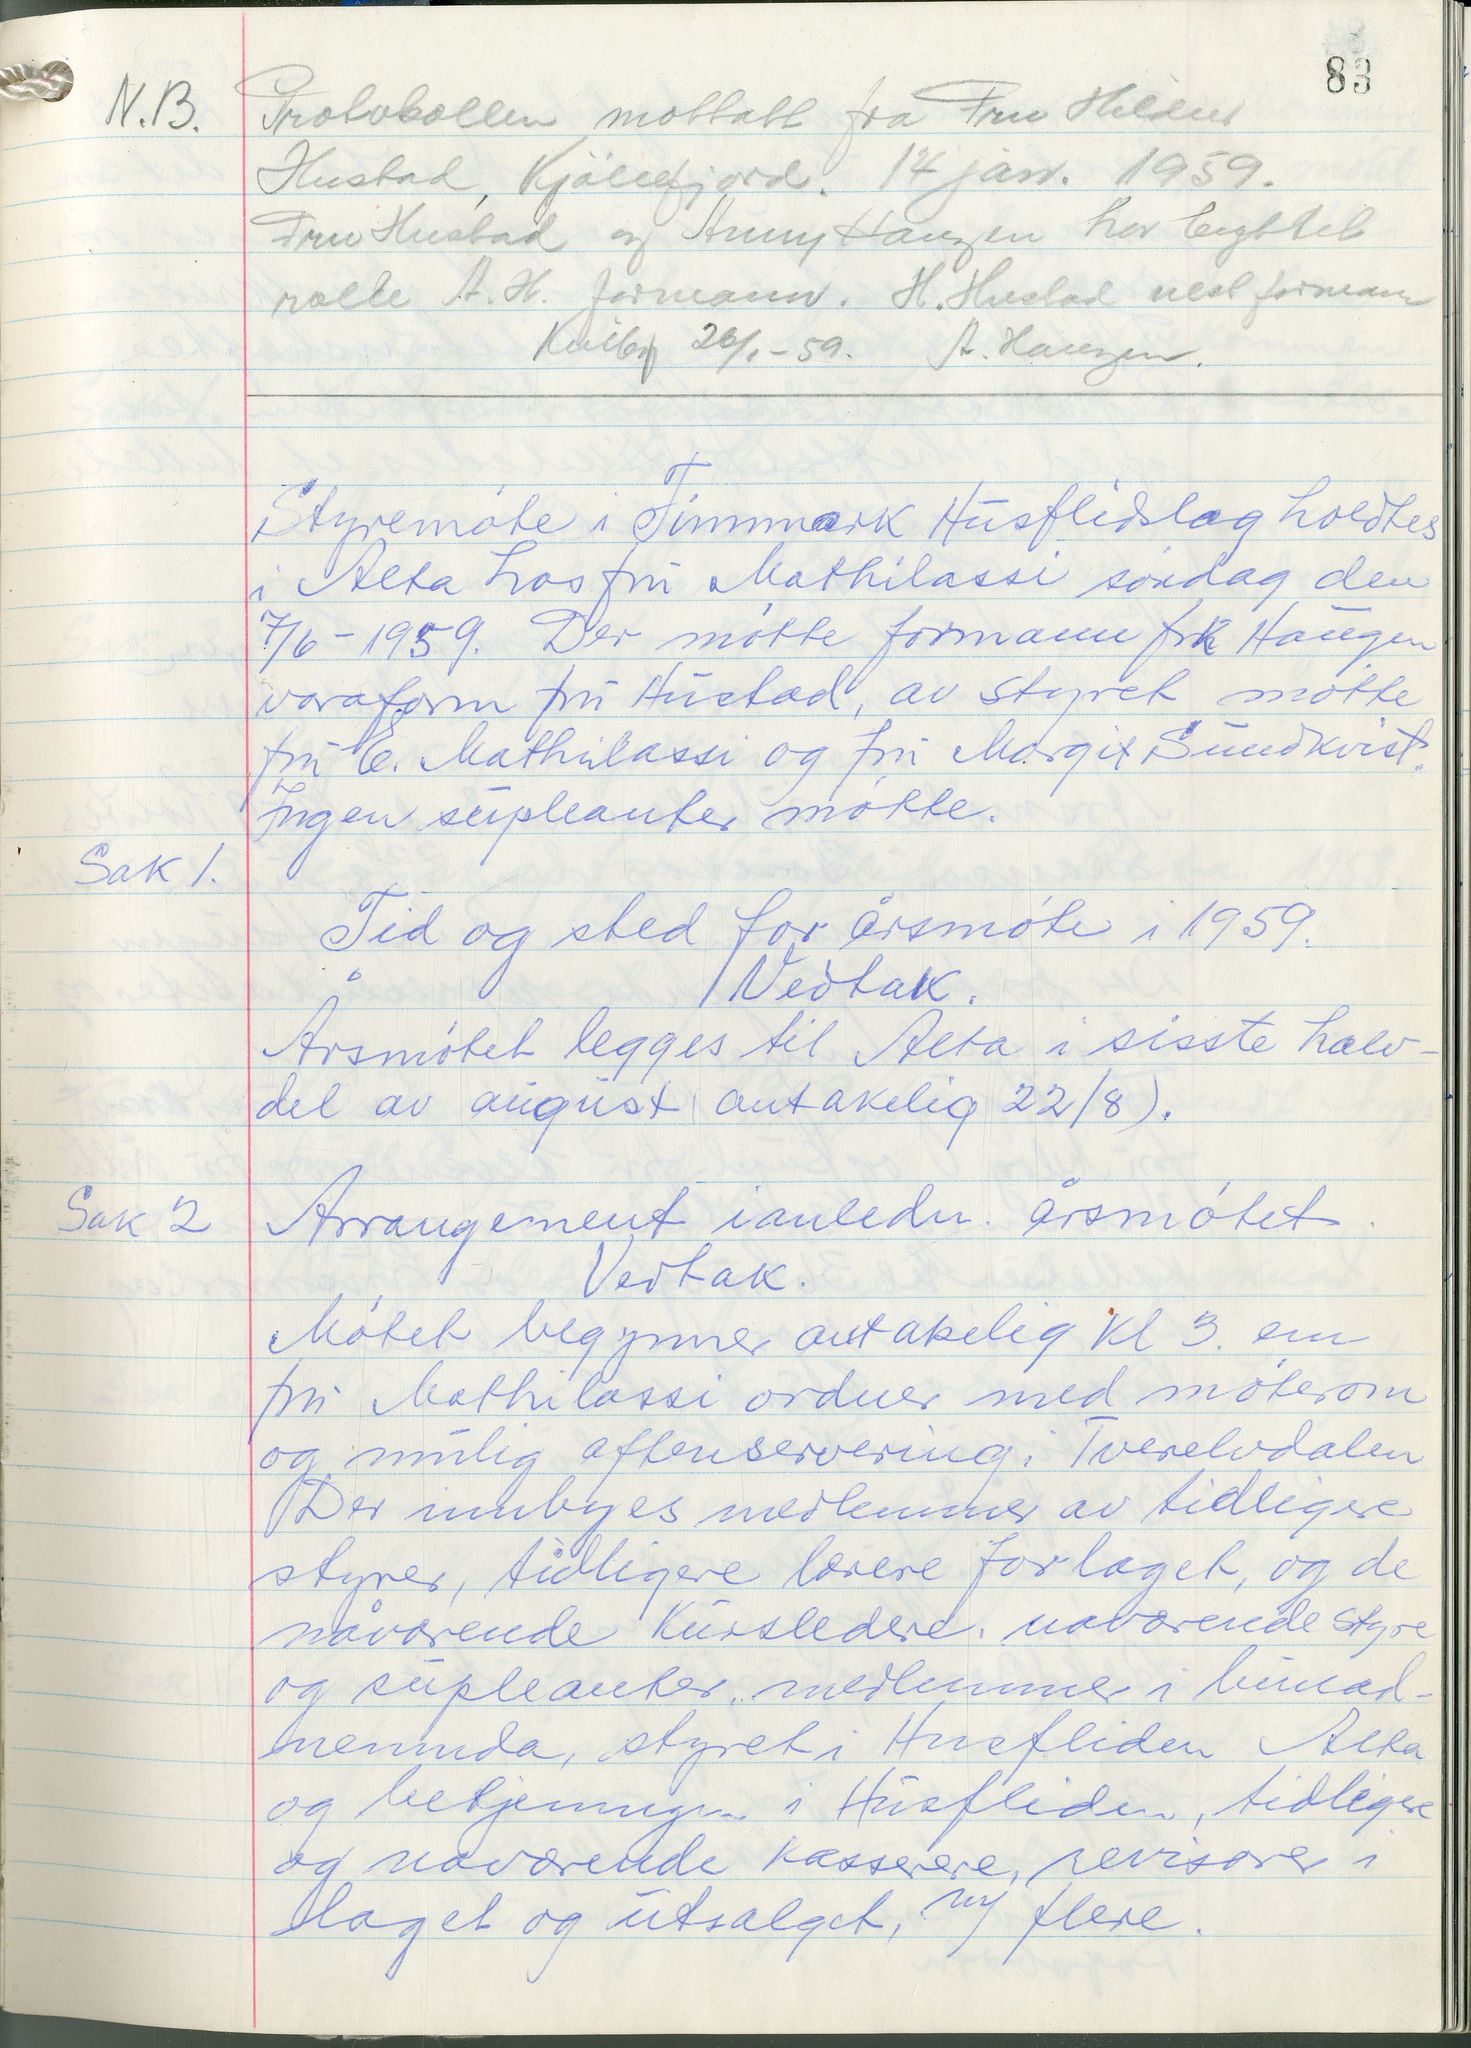 83
N.B. Protokollen mottatt fra Fru Hildur
Hustad, Kjøllefjord. 14 jan. 1959.
Fru Hustad og Anny Haugen har byttet
rolle A.H. formann. H. Hustad nestformann
26/1-59. A. Haugen.
Styremøte i Finnmark Husflidslag holdtes
i Alta hos fru Mathilassi søndag den
7/6-1959. Der møtte formann frk Haugen
varaform fru Hustad, av styret møtte
fru E. Mathilassi og fru Margit Sundkvist.
Ingen supleanter møtte.
Sak 1.
Tid og sted for årsmøte i 1959.
Vedtak.
Årsmøtet legges til Alta i sisste halv-
del av august (antakelig 22/8).
Sak 2 Arrangement i anledn. årsmøtet.
Vedtak.
Møtet begynner antakelig kl 3. em
fru Mathilassi ordner med møterom
og mulig aftenservering i Tverelvdalen
Der innbyes medlemmer av tidligere
styrer, tidligere lærere for laget, og de
nåværende kursledere. nåværende styre
og supleanter, medlemmer i bunad-
nemnda, styret i Husfliden Alta
og betjeningen i Husfliden, tidligere
og nåværende kasserere, revisorer i
laget og utsalget, og flere.